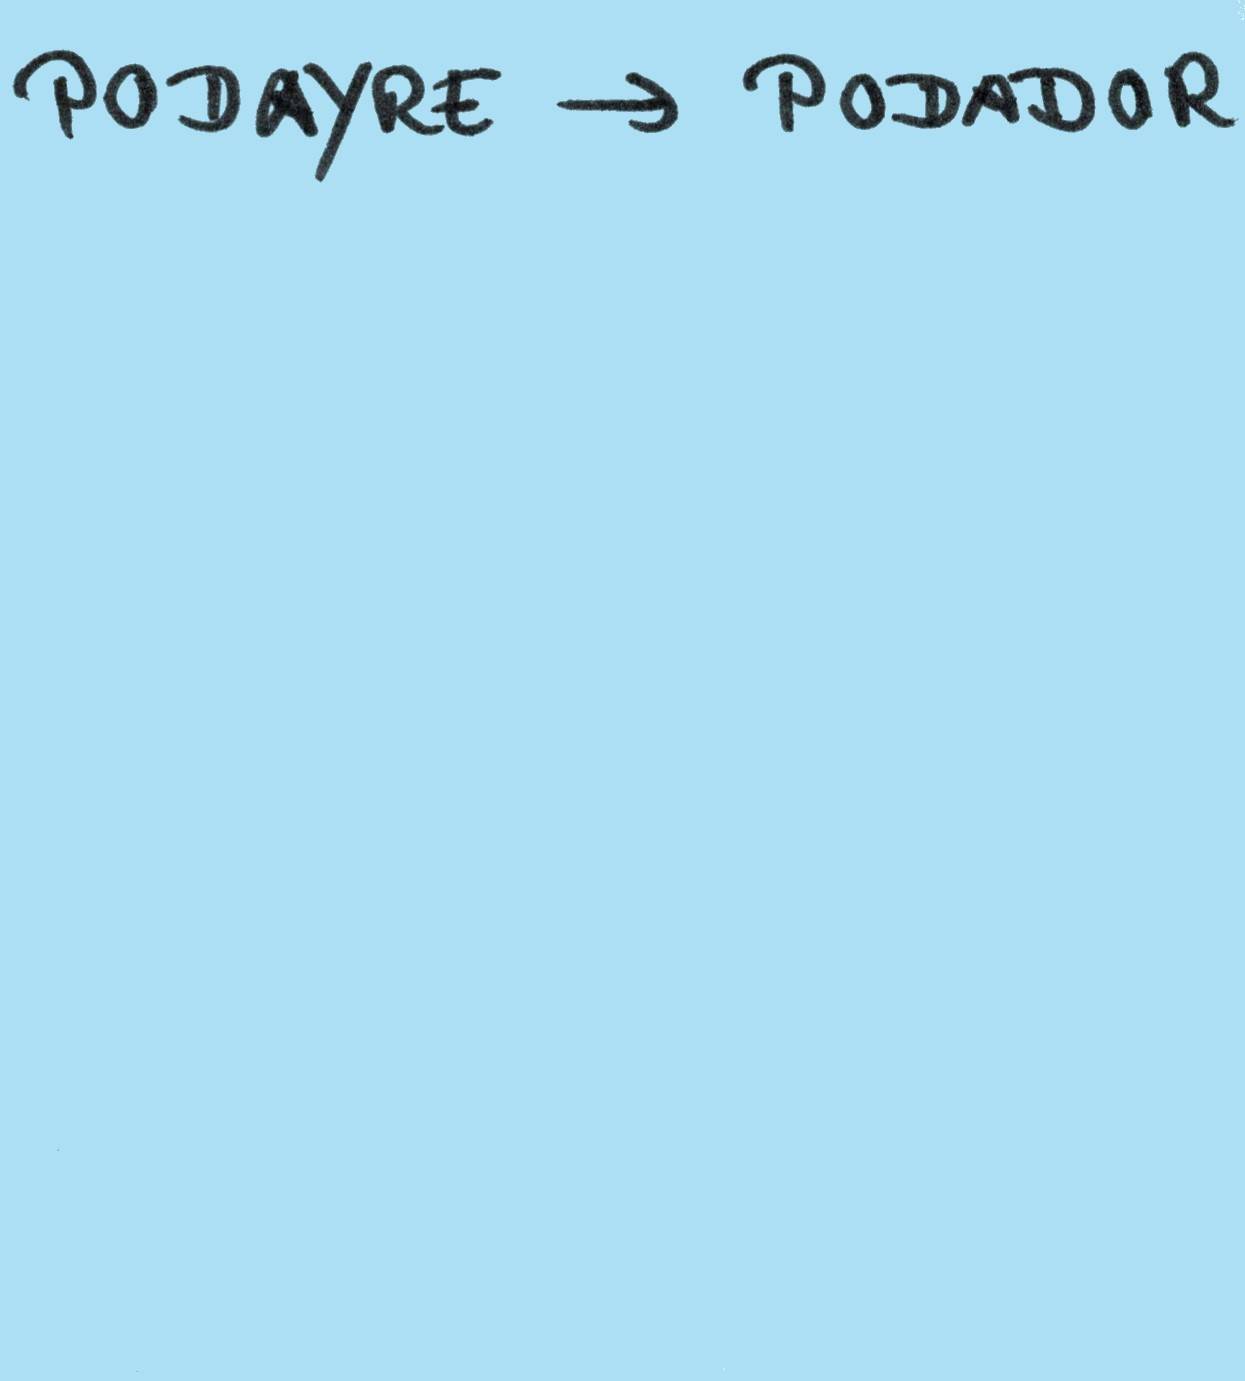 PODAYRE → PODADOR